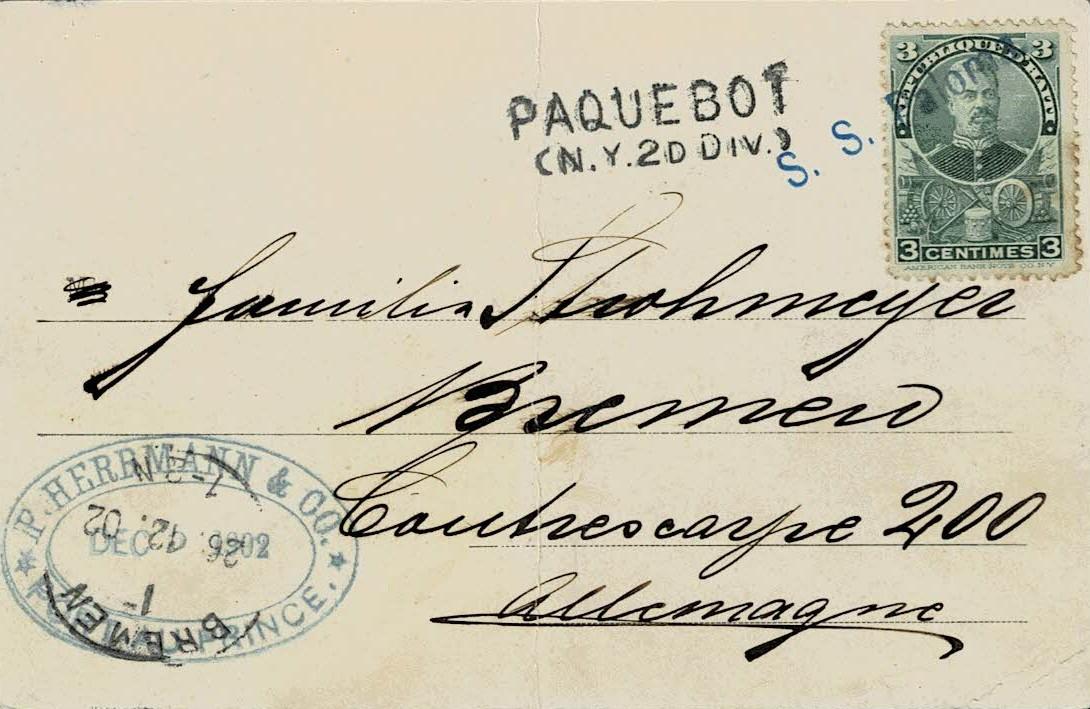 PAQUEBOT
(N.Y. 2D DIV.)
S. S.
3 3
REPUBLIQUE D'HAITI
3 CENTIMES 3
AMERICAN BANK NOTE CO. N.Y.
Familie Strohmeyer
Bremen
Contrescarpe 200
Allemagne
P. HERRMANN & CO.
DEC 1902
PORT-AU-PRINCE.
7-8 N
26. 12. 02
BREMEN
1-